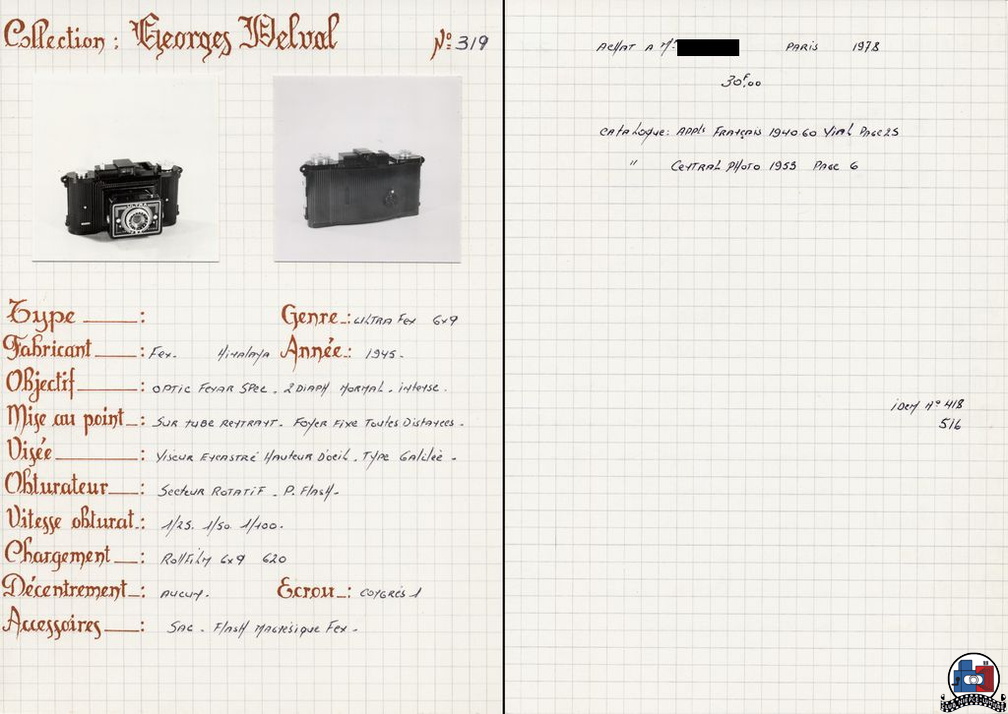 Collection : Georges Delval Nº 319
Type ______:
Genre_: ULTRA FEX 6x9
Fabricant ____: FEX. HIMALAYA
Année_: 1945.
Objectif ______: OPTIC FEXAR SPEC. 2 DIAPH NORMAL. INTENSE.
Mise au point_: SUR TUBE RENTRANT. FOYER FIXE TOUTES DISTANCES.
Visée ______: VISEUR ENCASTRÉ HAUTEUR D'OEIL. TYPE GALILÉE.
Obturateur ___: SECTEUR ROTATIF. P. FLASH.
Vitesse obturat.: 1/25. 1/50. 1/100.
Chargement ___: ROLLFILM 6x9 620
Décentrement_: AUCUN.
Ecrou_: CONGRÈS 1
Accessoires ____: SAC. FLASH MAGNÉSIQUE FEX.
ACHAT A Mr. PARIS 1978
30F,00
CATALOGUE: APPls FRANÇAIS 1940.60 VIAL PAGE 25
" CENTRAL PHOTO 1955 PAGE 6
IDEM Nº 418
516